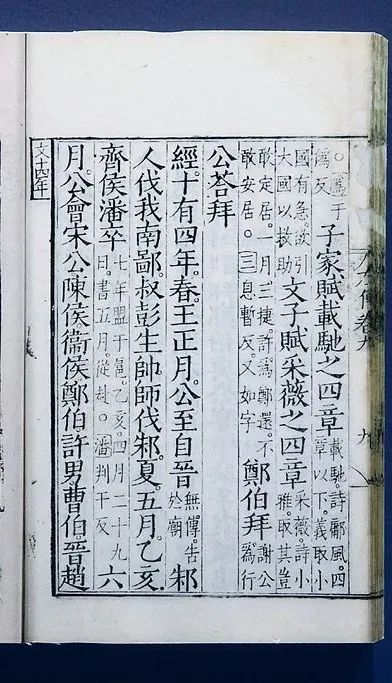 傳卷九
九
○爲于
僞反
子家賦載馳之四章
載馳詩鄘風四
章以下義取小
國有急欲引
大國以救助
文子賦采薇之四章
采薇詩小
雅取其豈
敢定居。一月三捷。許爲鄭還。不
敢安居。○三息暫反。又如字
鄭伯拜
謝公
爲行
公荅拜
經。十有四年。春。王正月。公至自晉
無傳。告
於廟
邾
人伐我南鄙。叔彭生帥師伐邾。夏。五月。乙亥。
齊侯潘卒
七年盟于扈。乙亥。四月二十九
日。書五月。從赴。○潘判干反
六
月。公會宋公陳侯衞侯鄭伯許男曹伯。晉趙
文十四年